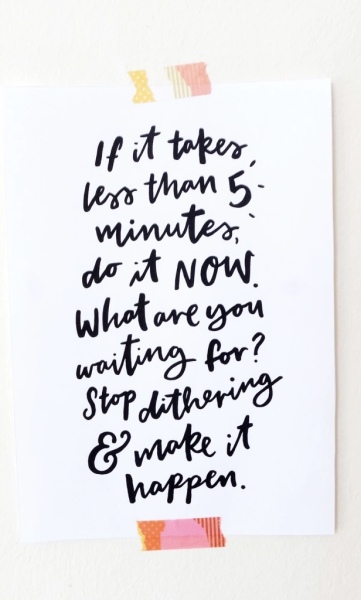 If it takes
less than 5
minutes,
do it NOW.
What are you
waiting for?
Stop dithering
& make it
happen.